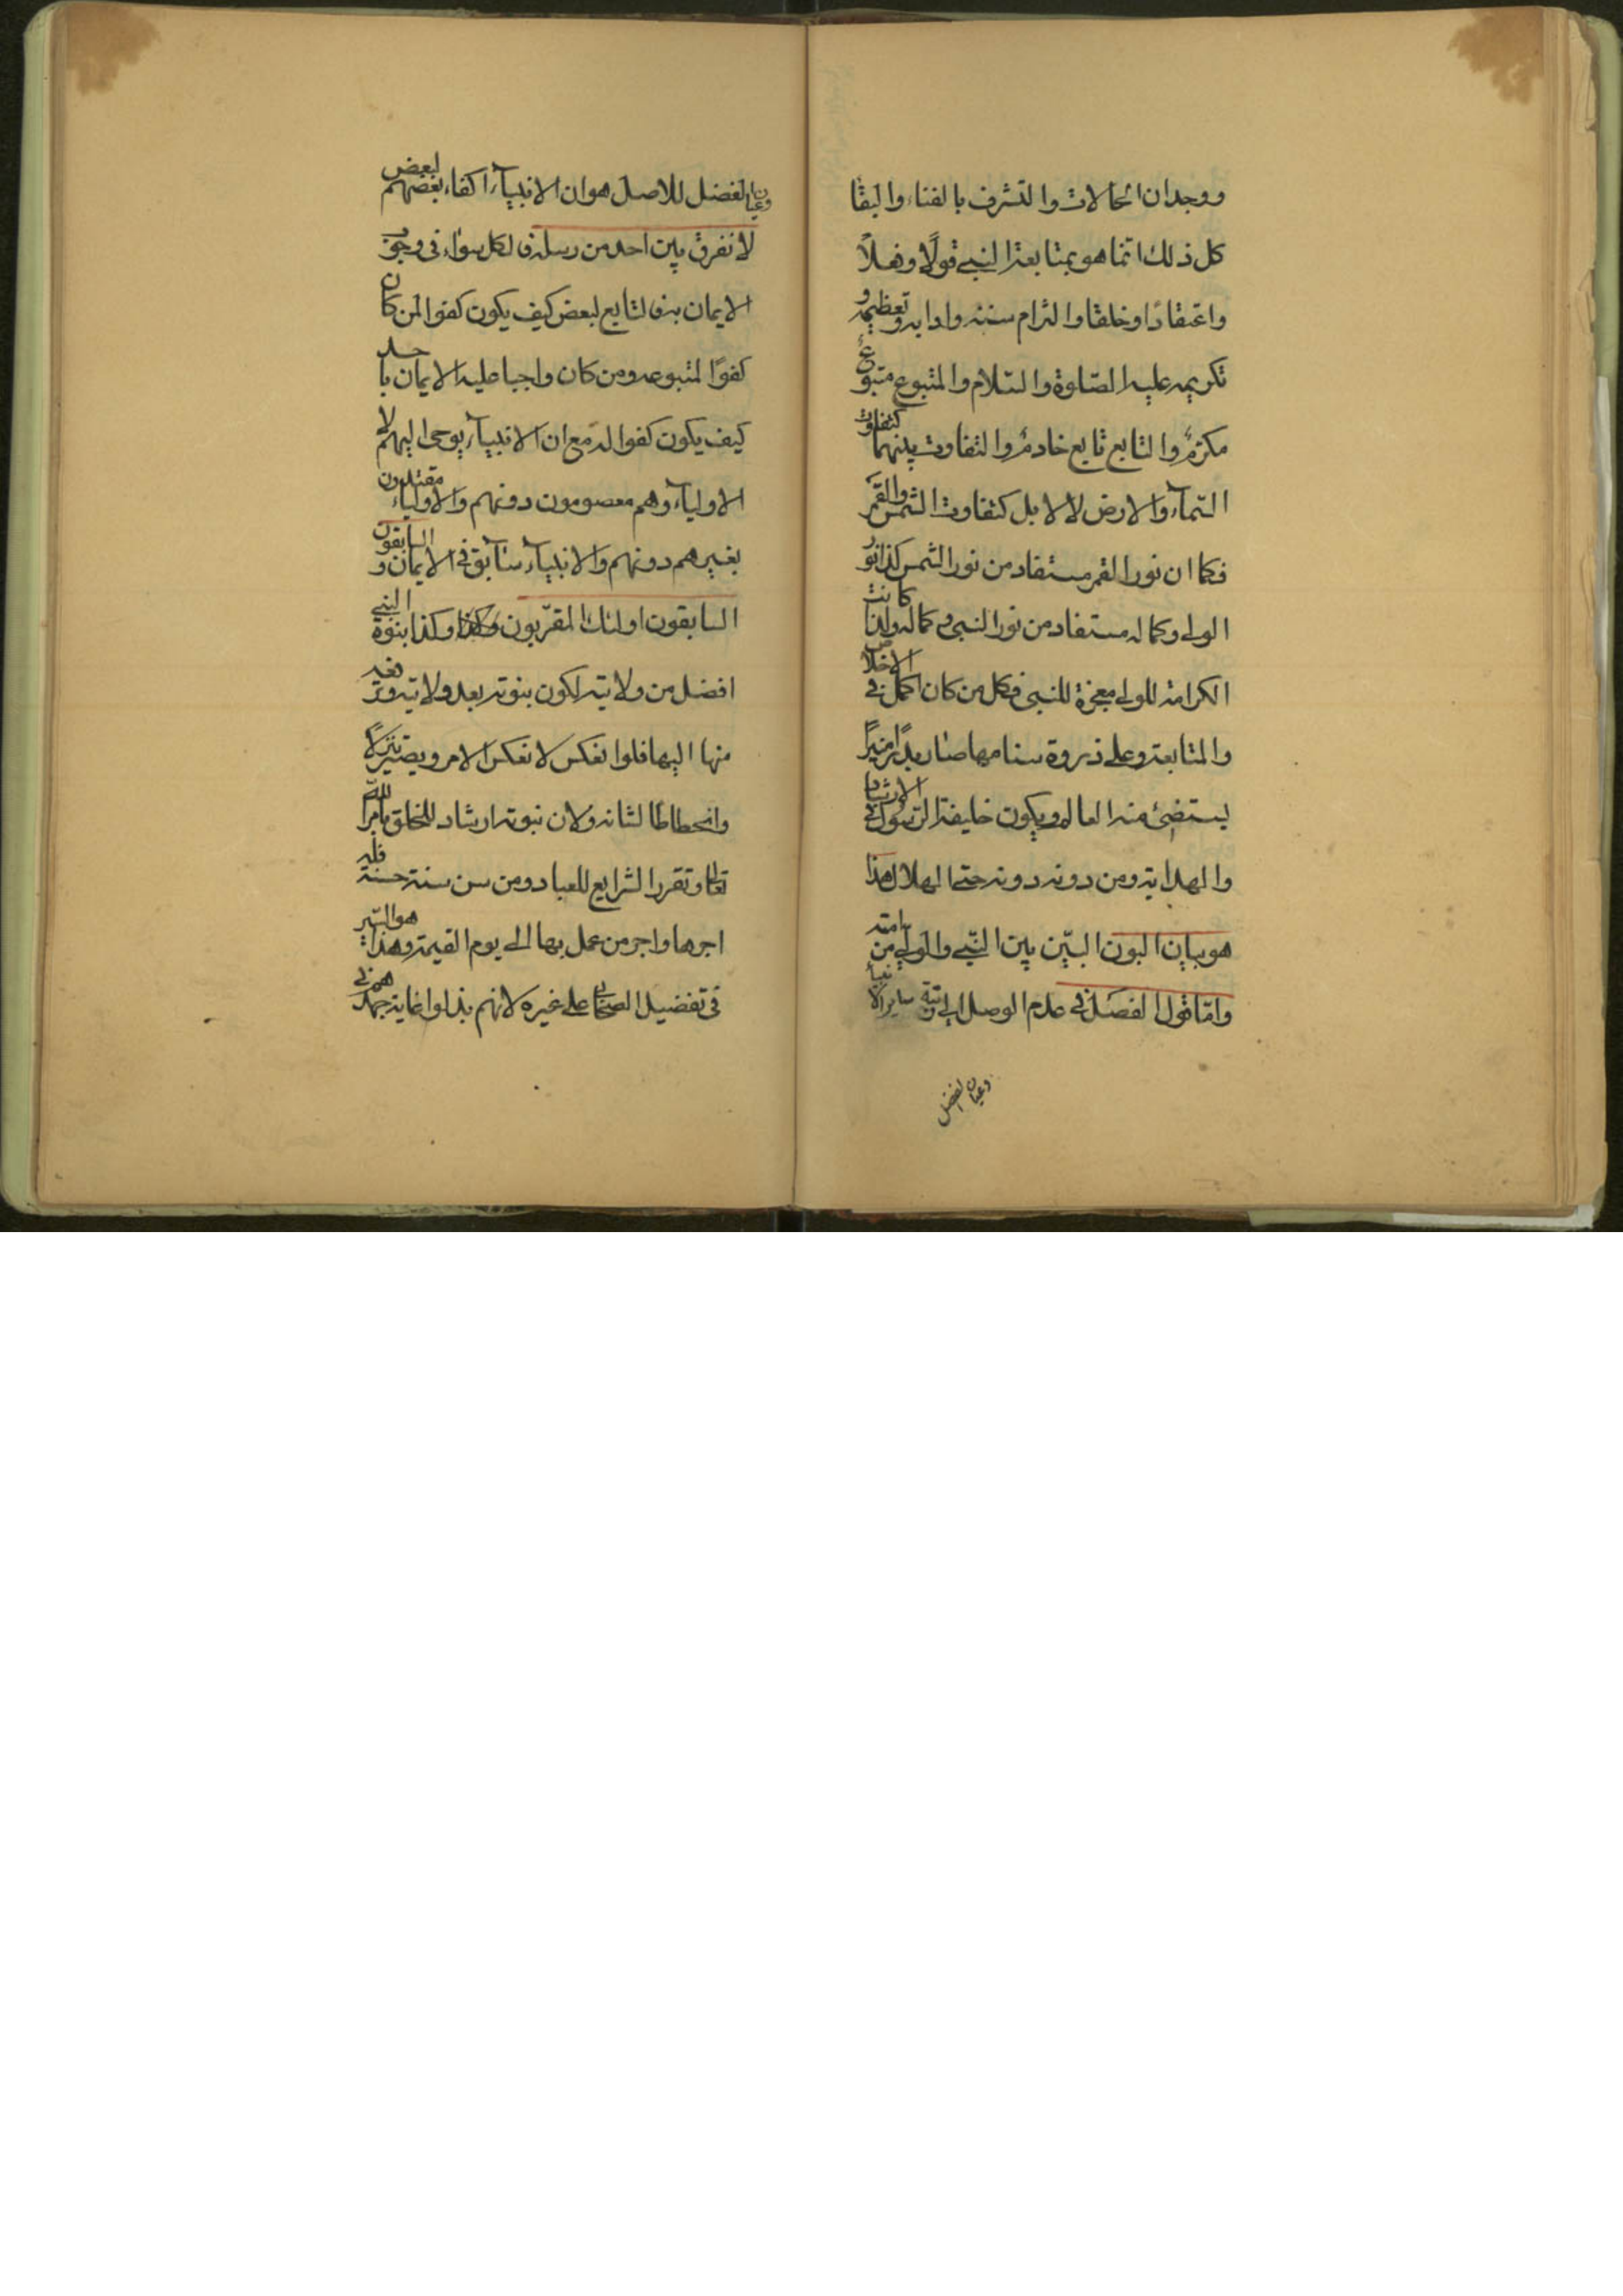 ووجدان الحالات والتشرف بالفناء والبقا
كل ذلك انما هو بمتابعة النبي قولًا وفعلًا
واعتقادًا وخلقا والتزام سننه وادابه وتعظيمه و
تكريمه عليه الصّلوة والسّلام والمتبوع متبوعٌ
مكرّمٌ والتابع تابع خادمٌ والتفاوت بينهما كتفاوت
السّمآء والارض لا لا بل كتفاوت الشمس والقمر
فكما ان نور القمر مستفاد من نور الشمس كذا نور
الولي وكماله مستفاد من نور النبي وكماله ولذا كانت
الكرامة للولي معجزة للنبي فكل من كان اكمل في الاخلاص
والمتابعة وعلى ذروة سنامها صار بدرًا منيرًا
يستضئ منه العالم ويكون خليفة الرّسول في الارشاد
والهداية ومن دونه دونه حتما لهلال هذا
هو بيان البون البيّن بين النّبي والولي من امته
وامّا قول الفصل في عدم الوصل الى رتبة ساير الانبيآء
وعيان الفضل
وعيان الفضل للاصل هو ان الانبيآء اكفاء بعضهم لبعض
لا نفرق بين احد من رسله فالكل سواء في وجوب
الايمان به فالتابع لبعض كيف يكون كفوا لمن كان
كفوًا لمتبوعه ومن كان واجبا عليه الايمان باحد
كيف يكون كفوا له مع ان الانبيآء يوحى اليهم لا
الاوليآء وهم معصومون دونهم والاوليآء مقتدون
بغيرهم دونهم والانبيآء سابق في الايمان والسابقون
السابقون اولئك المقربون وكذا نبوة النبي
افضل من ولايته لكون نبوته بعد ولايته وترقيه
منها اليها فلو انعكس لانعكس الامر ويصير تنزلًا
وانحطاطا لشانه ولان نبوته ارشاد للخلق بامر الله
تعالى وتقرر الشرايع للعباد ومن سن سنة حسنة فله
اجرها واجر من عمل بها الى يوم القيمة وهذا هو السّر
في تفضيل الصحابي على غيره لانهم بذلوا غاية جهدهم في